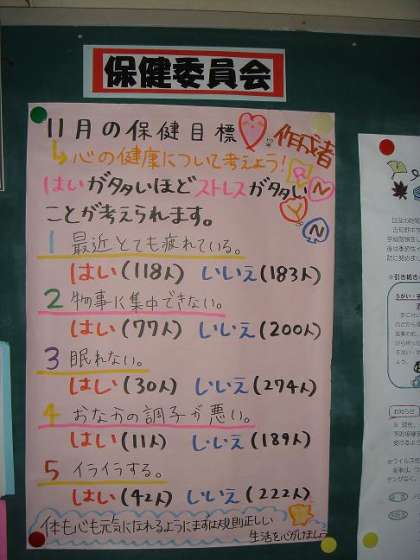 保健委員会
11月の保健目標
作成者
心の健康について考えよう!
R
N
Y
N
はいが多いほどストレスが多い
ことが考えられます。
1 最近とても疲れている。
はい(118人) いいえ(183人)
2 物事に集中できない。
はい(77人) いいえ(200人)
3 眠れない。
はい(30人) いいえ(274人)
4 おなかの調子が悪い。
はい(11人) いいえ(189人)
5 イライラする。
はい(42人) いいえ(222人)
体も心も元気になれるようにまずは規則正しい
生活を心がけましょ